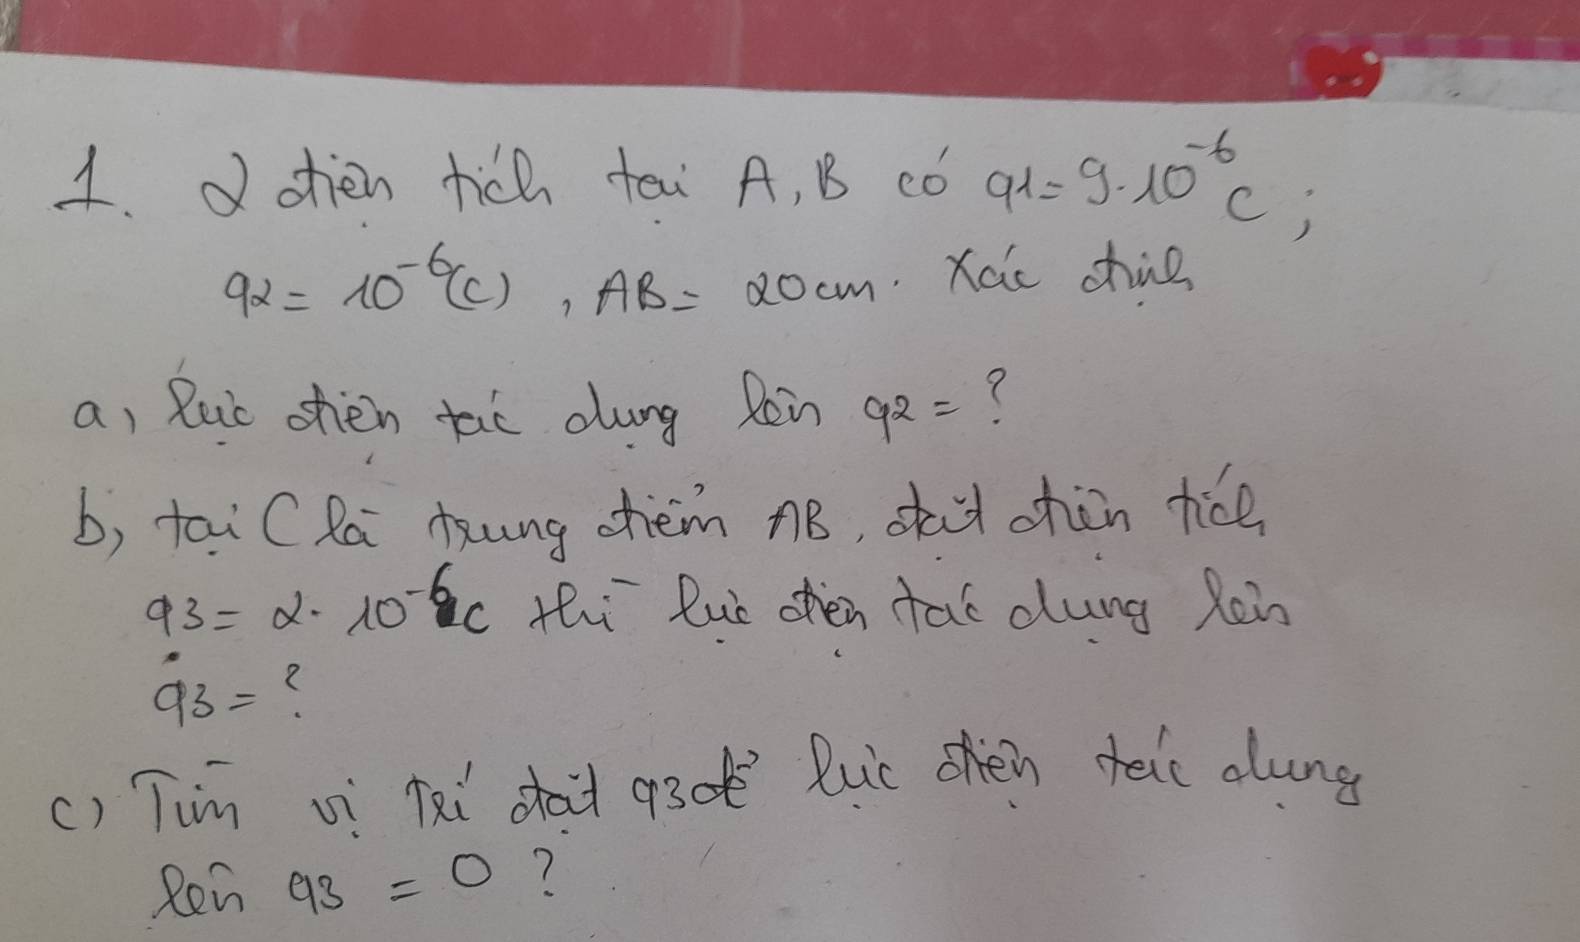 1. 2 điện tích tại A, B có q1= 9.10⁻⁶ C;
q2 = 10⁻⁶(C), AB= 20cm. Xác định
a, lực điện tác dụng lên q2 = ?
b, tại C là trung điểm AB, đặt điện tích
q3 = 2. 10⁻⁶ C thì lực điện tác dụng lên
q3 = ?
c) Tìm vị trí đặt q3 để lực điện tác dụng
lên q3 = 0 ?